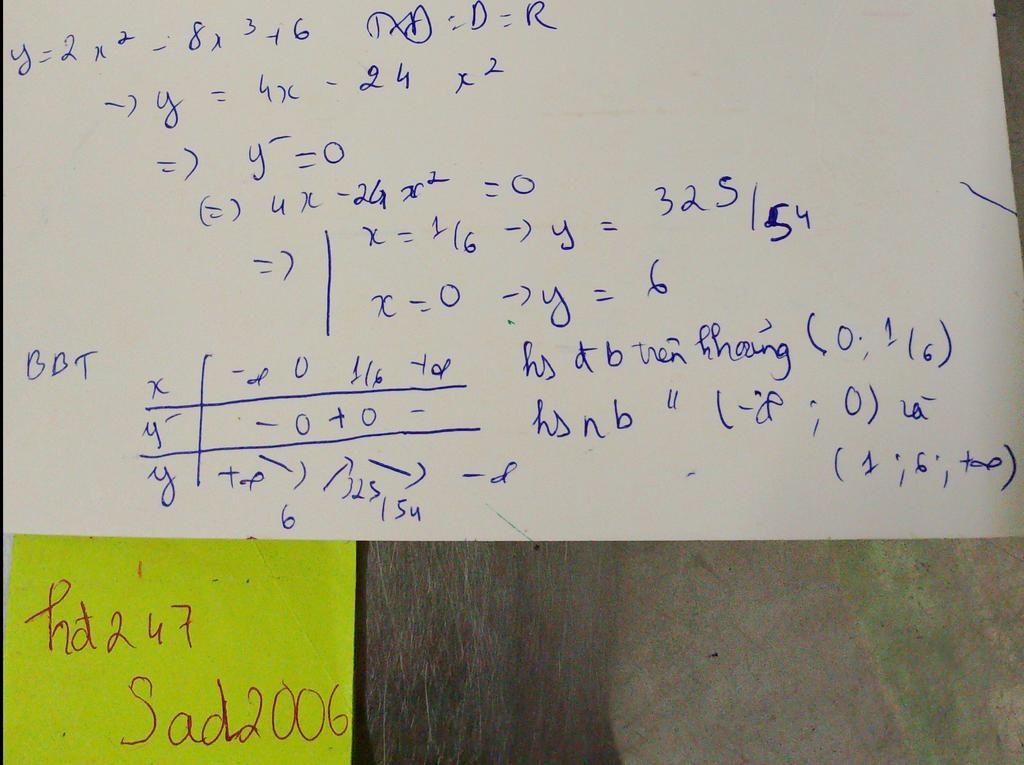 y = 2x² - 8x³ + 6 TXĐ : D = R
-> y = 4x - 24 x²
=> y⁻ = 0
(=) 4x - 24x² = 0
=> | x = 1/6 -> y = 325/54
x = 0 -> y = 6
BBT
x | -∞ 0 1/6 +∞
y⁻ | - 0 + 0 -
y | +∞ 6 325/54 -∞
hs đb trên khoảng (0; 1/6)
hs nb " (-∞ ; 0) và
(1 ; 6 ; +∞)
hd247
Sad2006